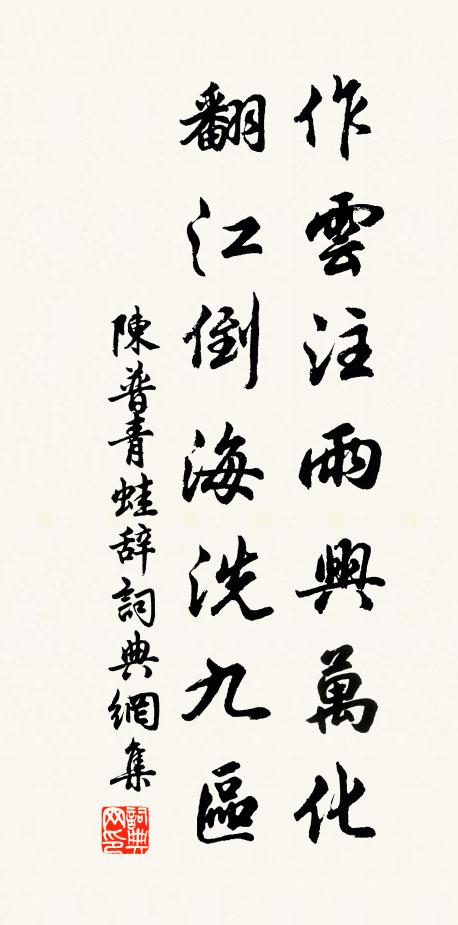 作雲注雨興萬化
翻江倒海洗九區
陳普青蛙辞詞典網集
詞典网印